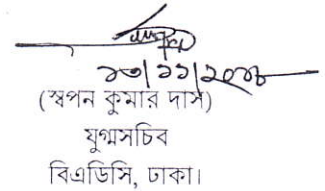 ১৩/১১/২০১৮
(স্বপন কুমার দাস)
যুগ্মসচিব
বিএডিসি, ঢাকা।